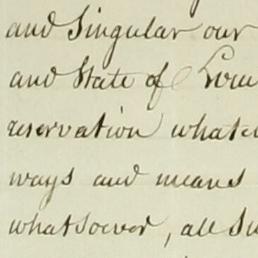 and Singular our
and State of Loui
reservation whate
ways and means
whatsoever, all Su